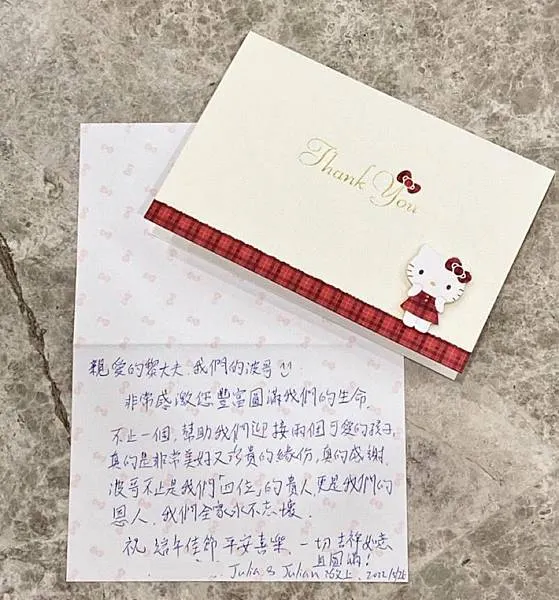 Thank You
親愛的黎大夫、我們的波哥
非常感激您豐富圓滿我們的生命.
不止一個,幫助我們迎接兩個可愛的孩子,
真的是非常美好又珍貴的緣份,真的感謝.
波哥不止是我們「四位」的貴人更是我們的
恩人,我們全家永不忘懷.
祝 端午佳節 平安喜樂、一切吉祥如意
且圓滿!
Julia & Julian 敬上、2022/5/25